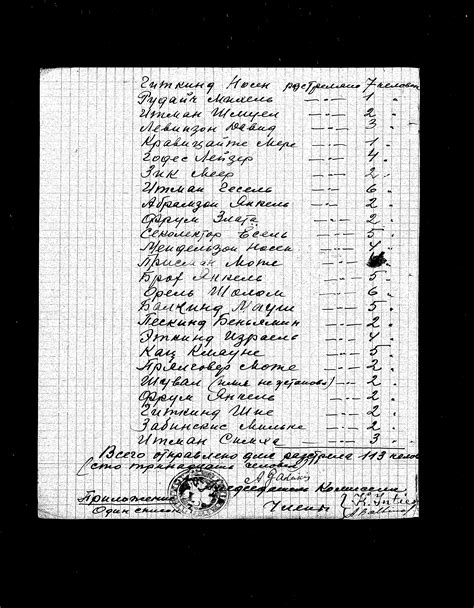 Гиткинд Носен расстреляно 7 человек
Рудайн Михель — " — 1 "
Итман Шмуел — " — 2 "
Левинзон Давид — " — 3 "
Кравицайте Мере — " — 1 "
Годес Лейзер — " — 4 "
Зик Меер — " — 2 "
Итман Гесель — " — 6 "
Абрамзон Янкель — " — 2 "
Фрум Злата — " — 2 "
Сеголектор Есель — " — 5 "
Мендельзон Носен — " — 4 "
Присман Моте — " —
Броф Янкель — " — 5 "
Орель Шолом — " — 6 "
Балкинд Мауши — " — 5 "
Пескинд Беньямин — " — 2 "
Эткинд Израель — " — 4 "
Кац Клаунс — " — 5 "
Прялговер Моте — " — 2 "
Шувал (имя не установ) — " — 2 "
Фрум Янкель — " — 2 "
Гиткинд Шне — " — 2 "
Забинскис Мильне — " — 2 "
Итман Симха — " — 3 "
Всего отправлено для расстрела 113 челов
(сто тринадцать человек)
Председатель Комиссии
Приложение
Один список Члены